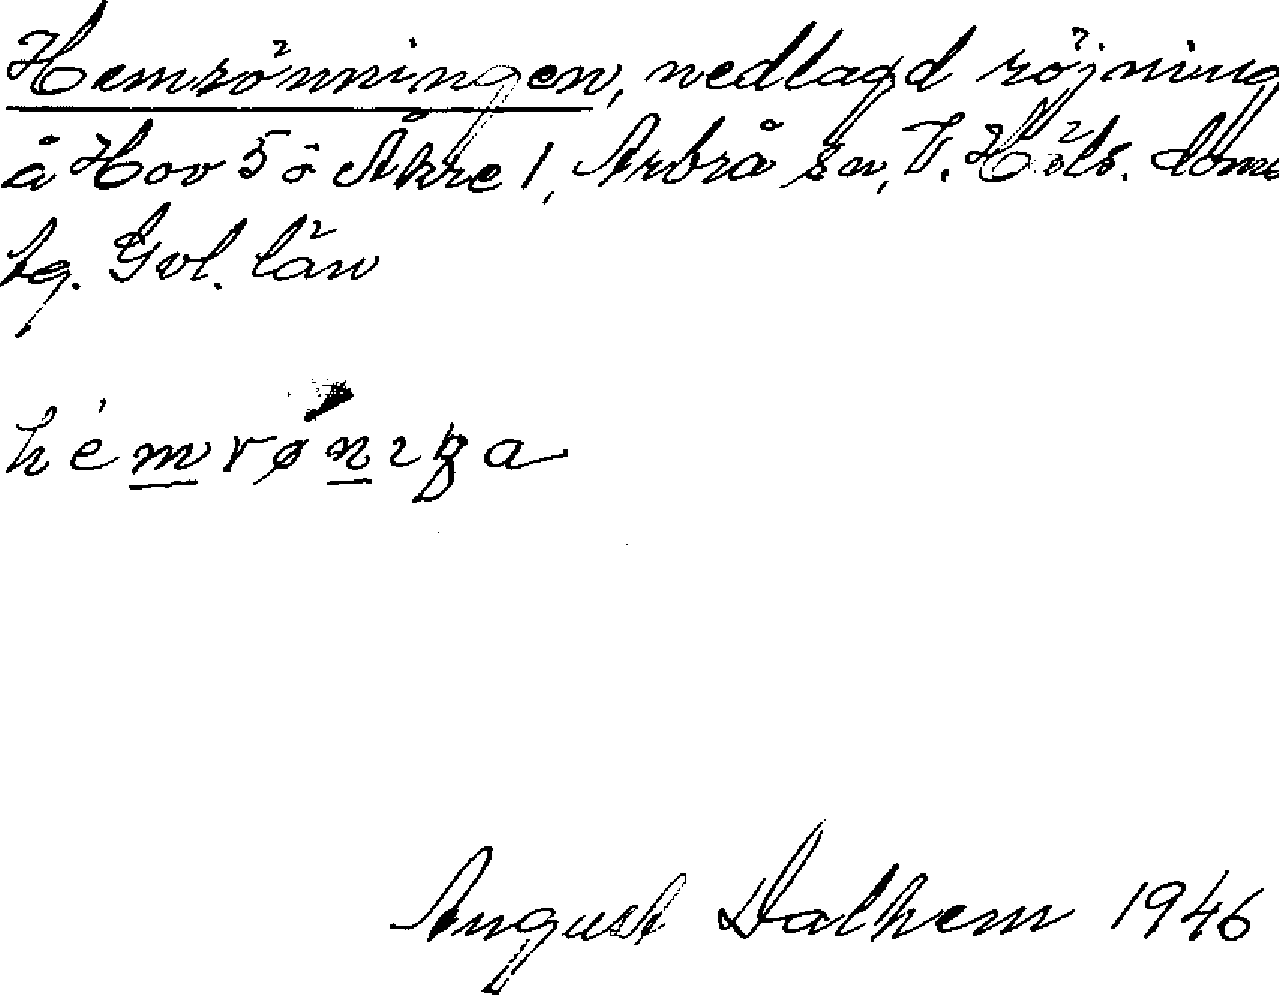 Hemrönningen, nedlagd röjning
å Hov 5 o Åkre 1, Arbrå sn, V. Häls. doms
tg. Gvl. län
hémrønıŋa
August Dalhem 1946